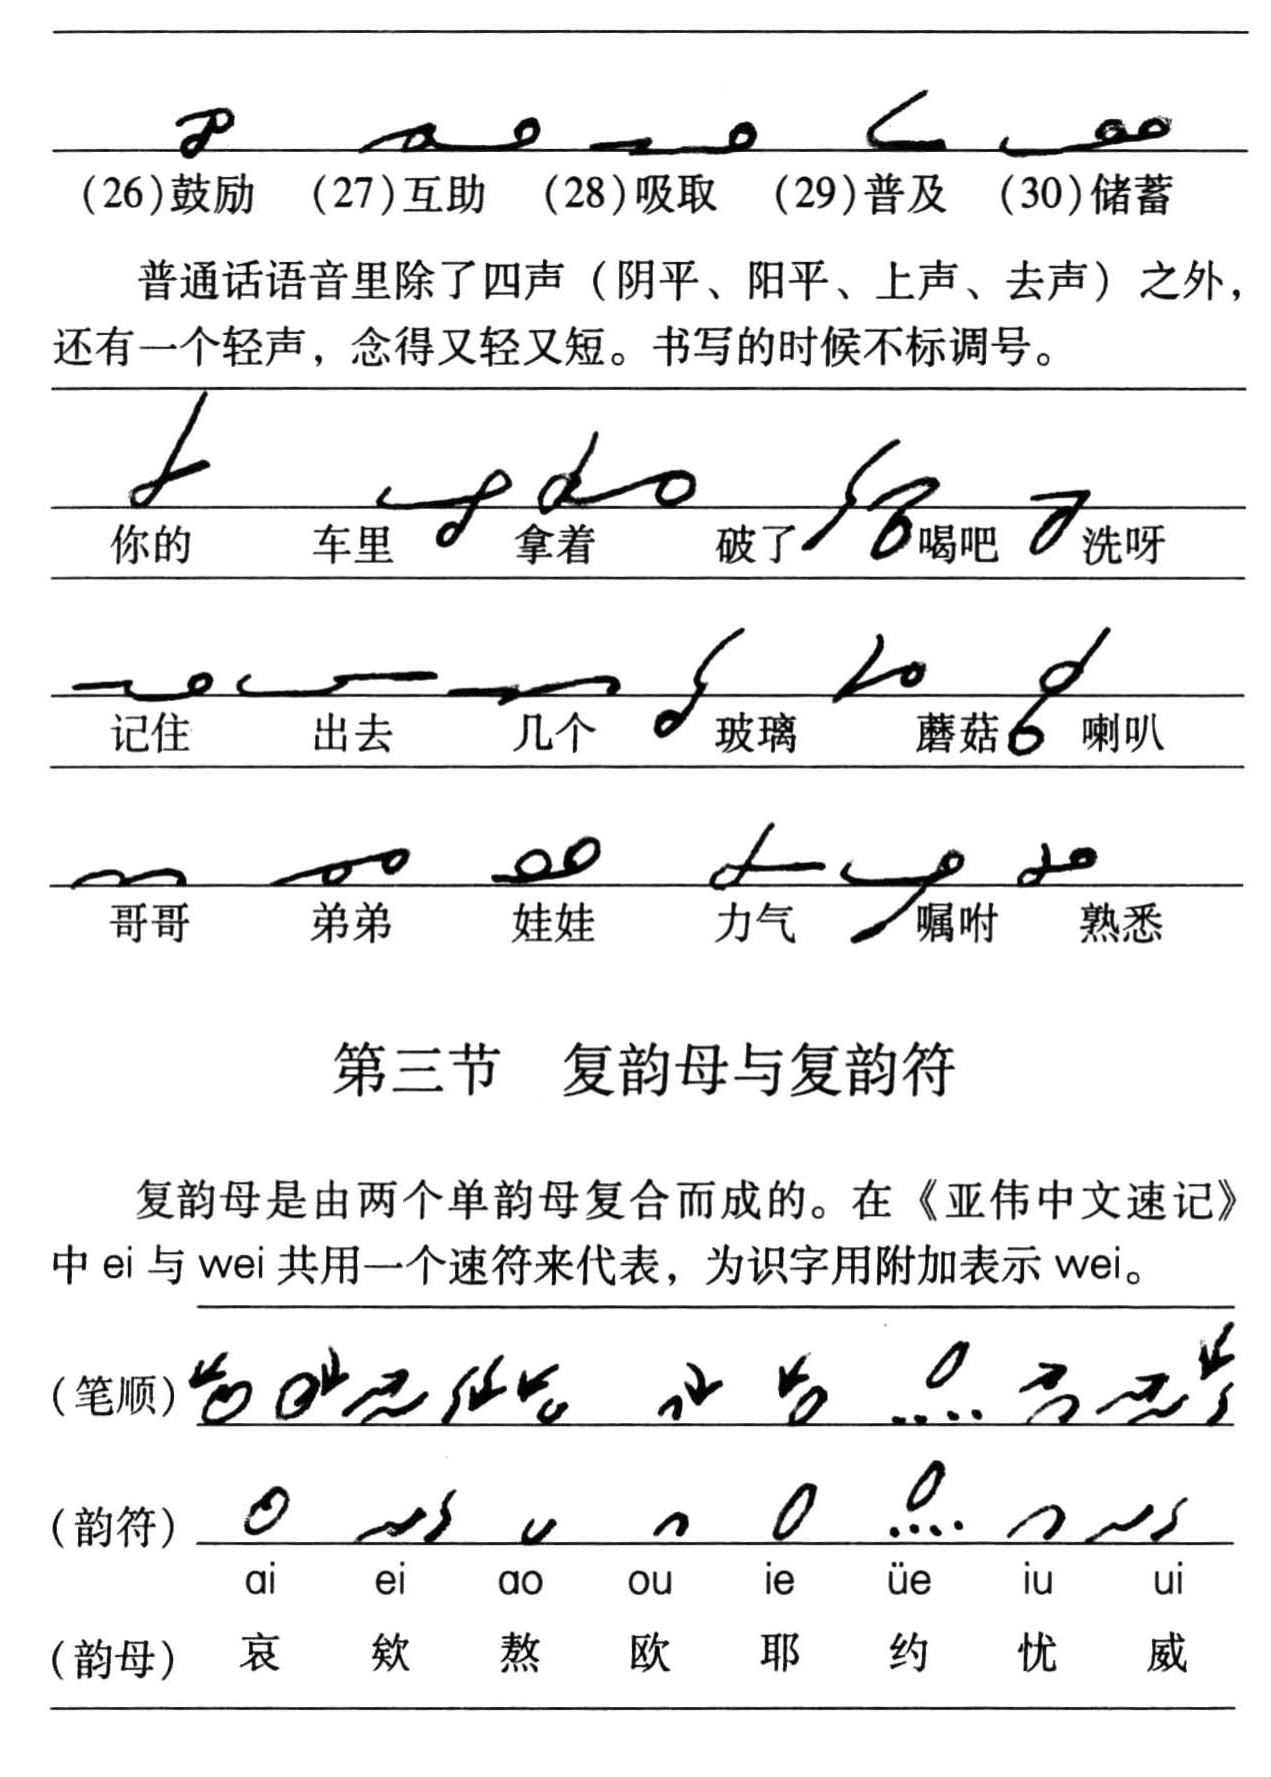 (26)鼓励 (27)互助 (28)吸取 (29)普及 (30)储蓄
普通话语音里除了四声（阴平、阳平、上声、去声）之外，
还有一个轻声，念得又轻又短。书写的时候不标调号。
你的 车里 拿着 破了 喝吧 洗呀
记住 出去 几个 玻璃 蘑菇 喇叭
哥哥 弟弟 娃娃 力气 嘱咐 熟悉
第三节 复韵母与复韵符
复韵母是由两个单韵母复合而成的。在《亚伟中文速记》
中 ei 与 wei 共用一个速符来代表，为识字用附加表示 wei。
(笔顺)
(韵符)
ai ei ao ou ie üe iu ui
(韵母) 哀 欸 熬 欧 耶 约 忧 威